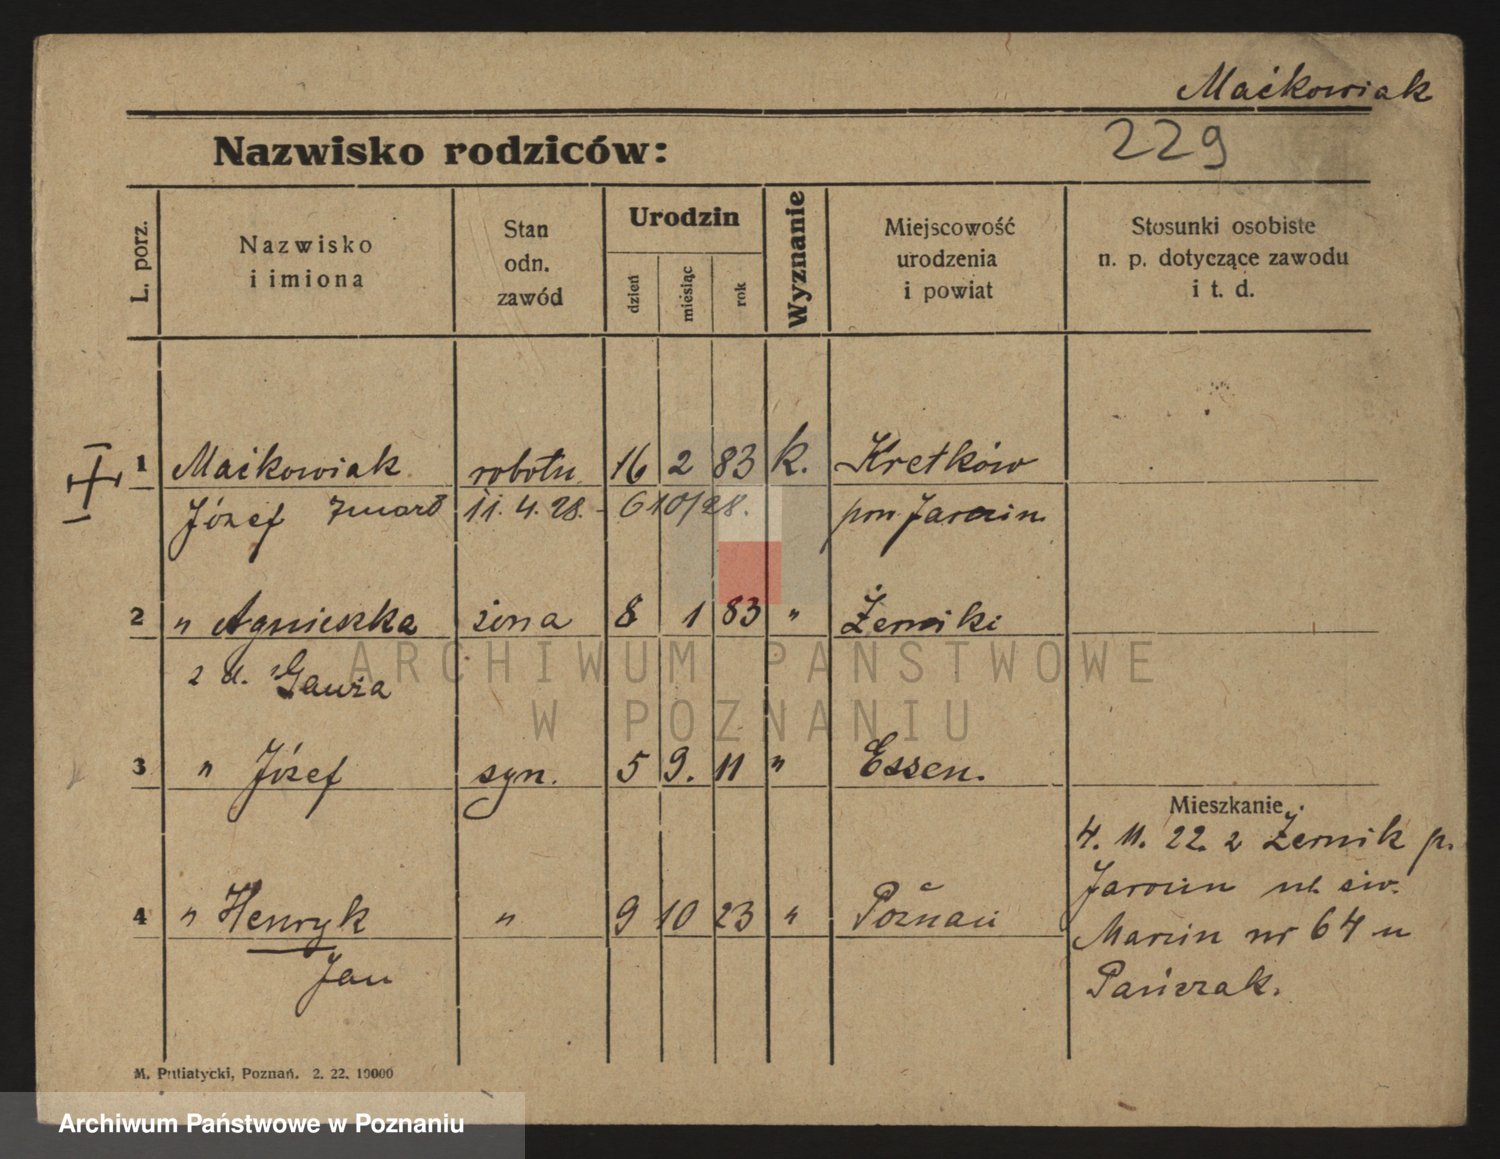 Maćkowiak
Nazwisko rodziców:
229
L. porz.
Nazwisko
i imiona
Stan
odn.
zawód
Urodzin
dzień
miesiąc
rok
Wyznanie
Miejscowość
urodzenia
i powiat
Stosunki osobiste
n. p. dotyczące zawodu
i t. d.
1 Maćkowiak robotn 16 2 83 k. Kretków
Józef zmarł 11. 4. 28. - 610/28. pow Jarocin
2 " Agnieszka żona 8 1 83 " Żerniki
z d. Gawża
3 " Józef syn. 5 9. 11 " Essen.
Mieszkanie
4. 11. 22. z Żernik p.
Jarocin ul. św.
4 " Henryk " 9 10 23 " Poznań
Marcin nr 64 u
Jan
Pańczak.
M. Putiatycki, Poznań. 2. 22. 10000
ARCHIWUM PAŃSTWOWE
W POZNANIU
Archiwum Państwowe w Poznaniu